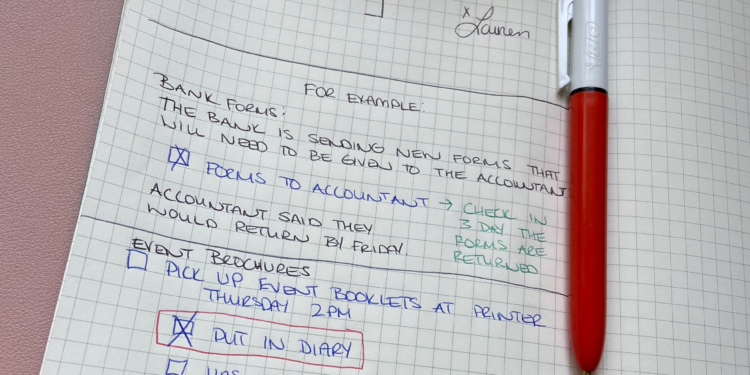 x Lauren
FOR EXAMPLE:
BANK FORMS:
THE BANK IS SENDING NEW FORMS THAT
WILL NEED TO BE GIVEN TO THE ACCOUNTANT
FORMS TO ACCOUNTANT → CHECK IN
3 DAY THE
FORMS ARE
RETURNED
ACCOUNTANT SAID THEY
WOULD RETURN BY FRIDAY.
EVENT BROCHURES
PICK UP EVENT BOOKLETS AT PRINTER
THURSDAY 2PM
PUT IN DIARY